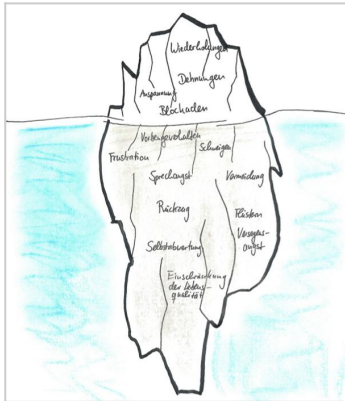 Wiederholungen
Dehnungen
Anspannung
Blockaden
Störungsverhalten
Schweigen
Frustration
Sprechangst
Vermeidung
Rückzug
Flüstern
Versagens-
angst
Selbstabwertung
Einschränkung
der Lebens-
qualität